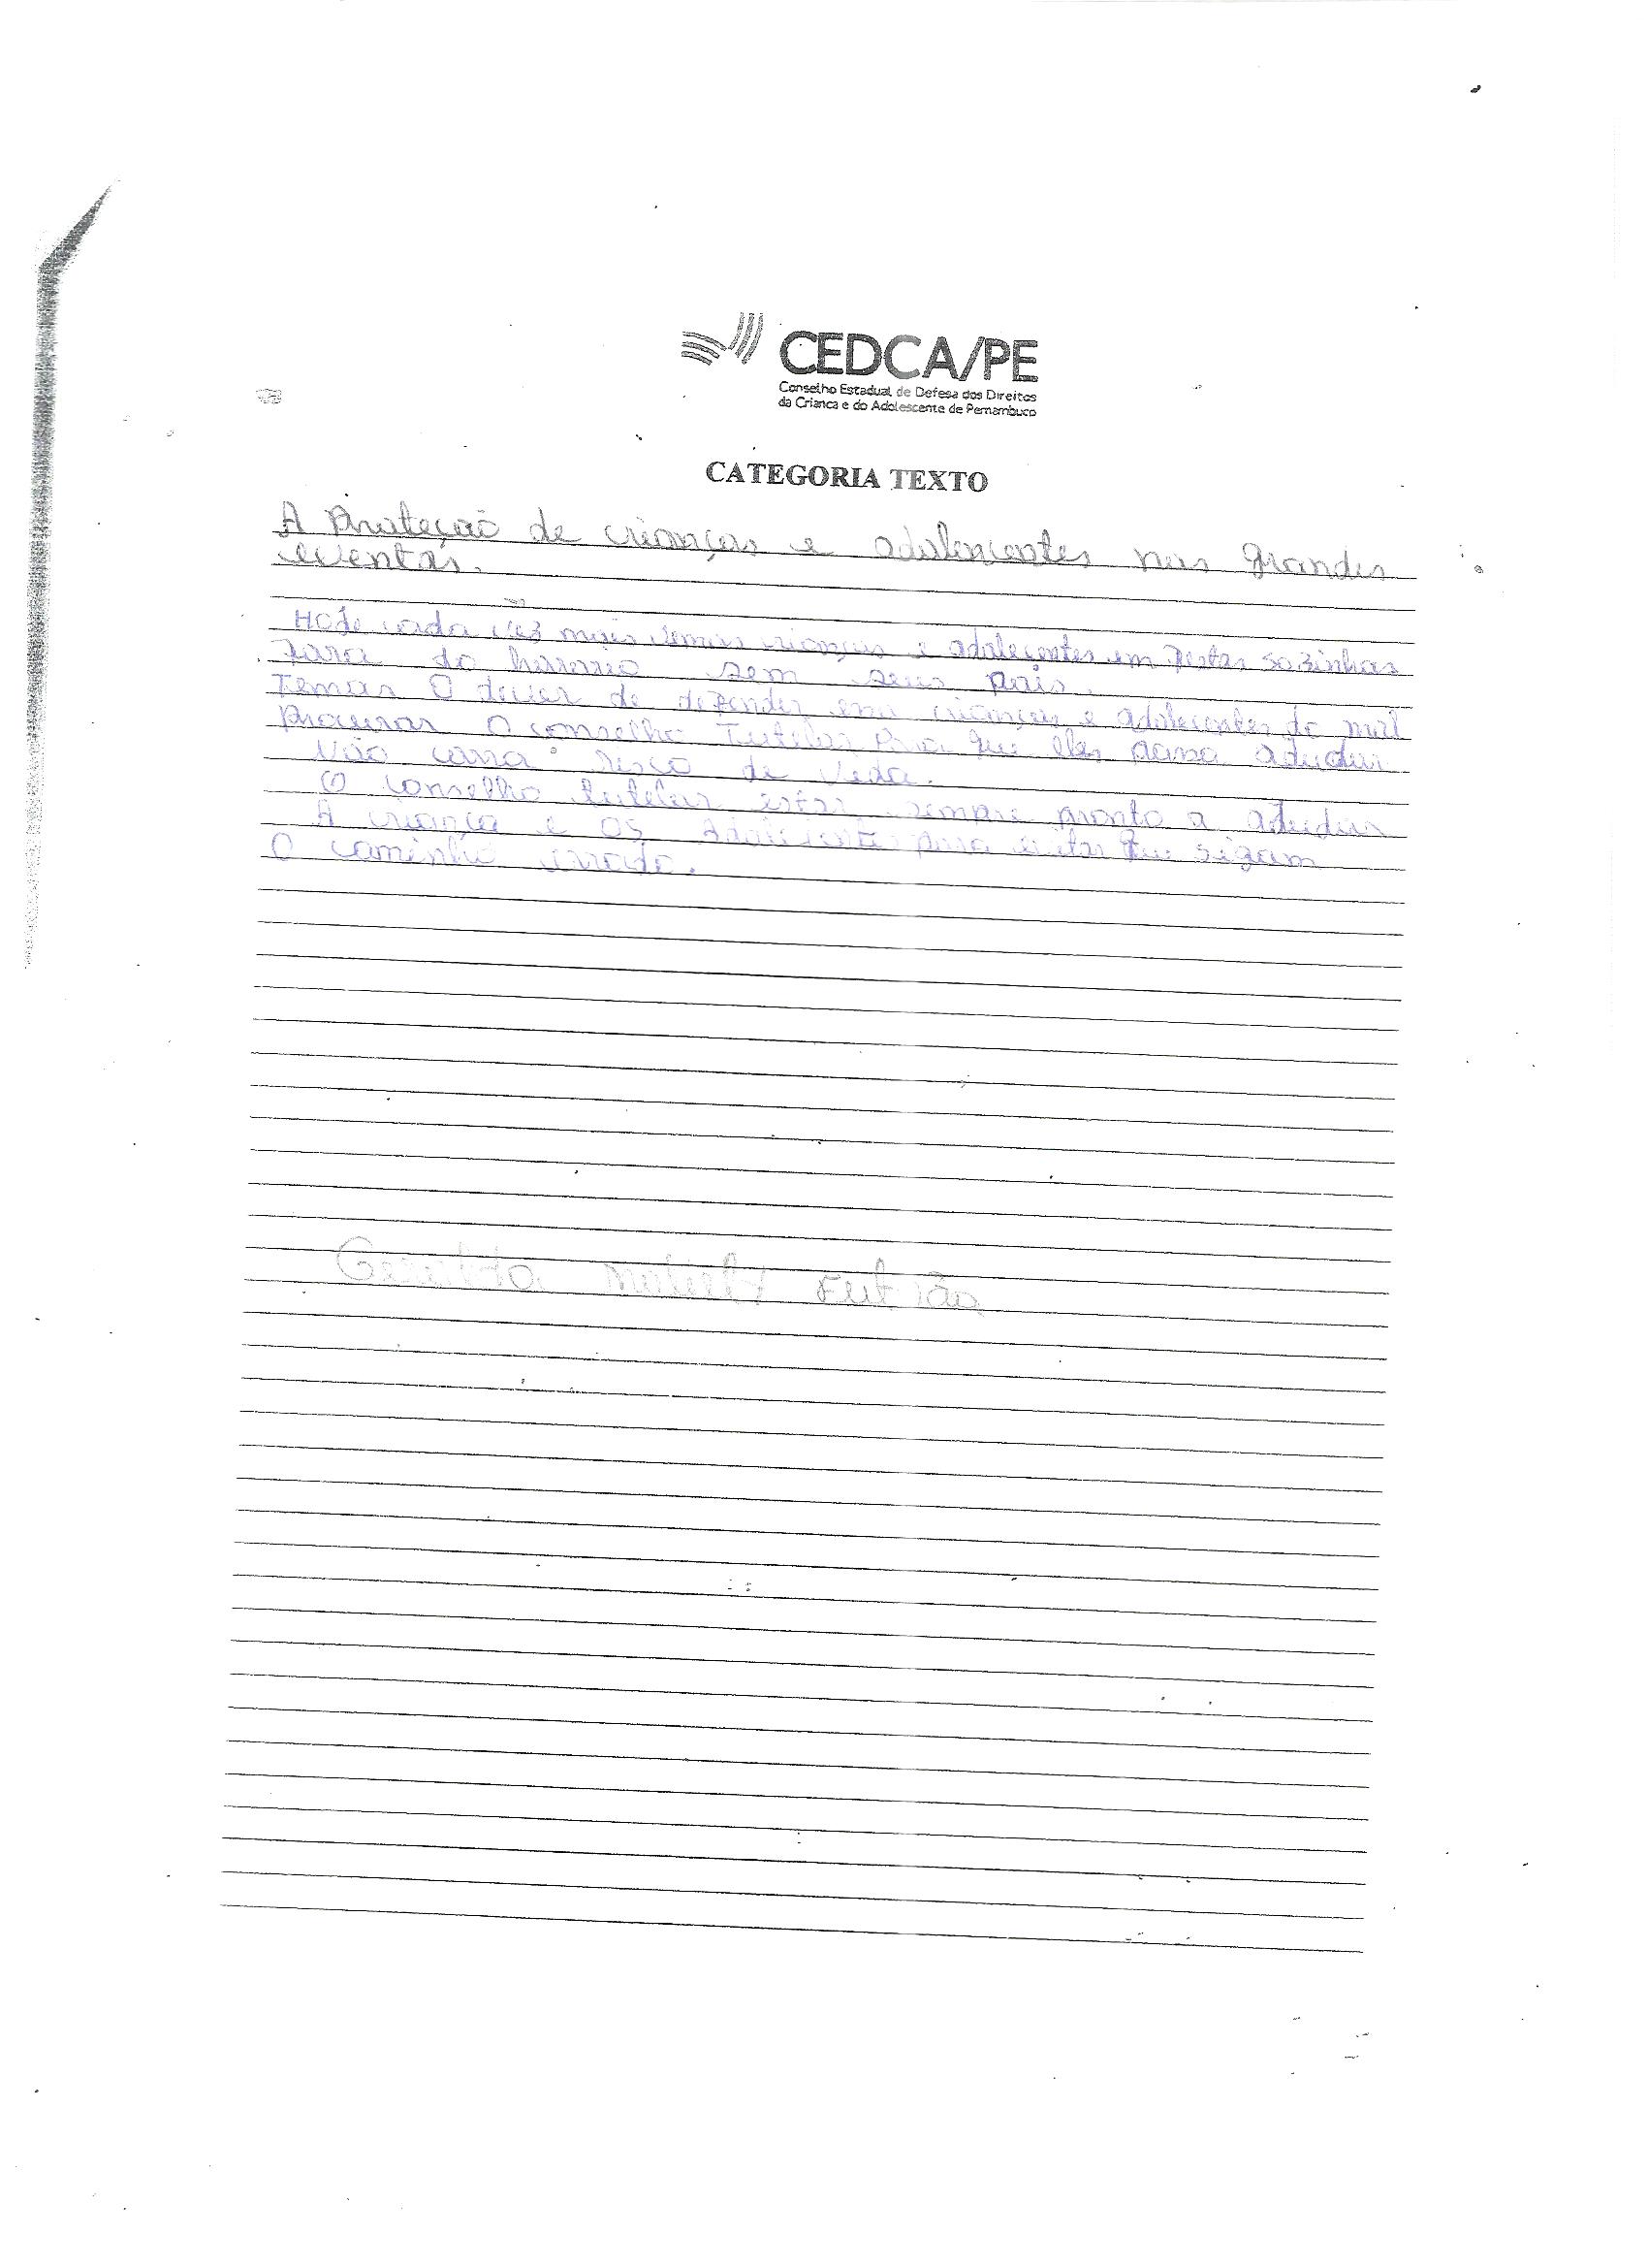 CEDCA/PE
Conselho Estadual de Defesa dos Direitos
da Crianca e do Adolescente de Pernambuco
CATEGORIA TEXTO
A Proteção de crianças e adolencentes nos grandes
eventos.
Hoje cada vez mais vemos crianças e adolecentes em festas sozinhas
fora do horario sem seus pais.
Temos O dever de defender crianças e adolecentes do mal
procurar O conselho Tutelar para que eles possa adudar
Não corra risco de vida.
O conselho tutelar estar sempre pronto a adudar
A criança e os para evitar que sigam
O caminho errado.